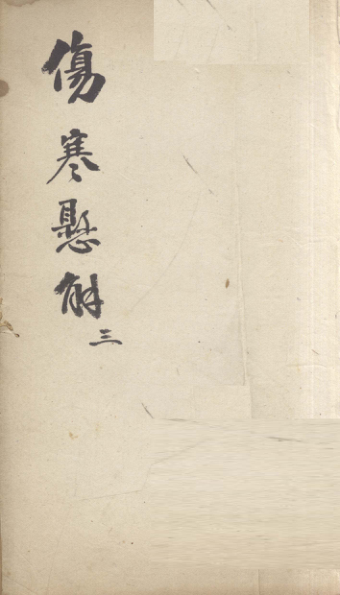 傷寒懸解三